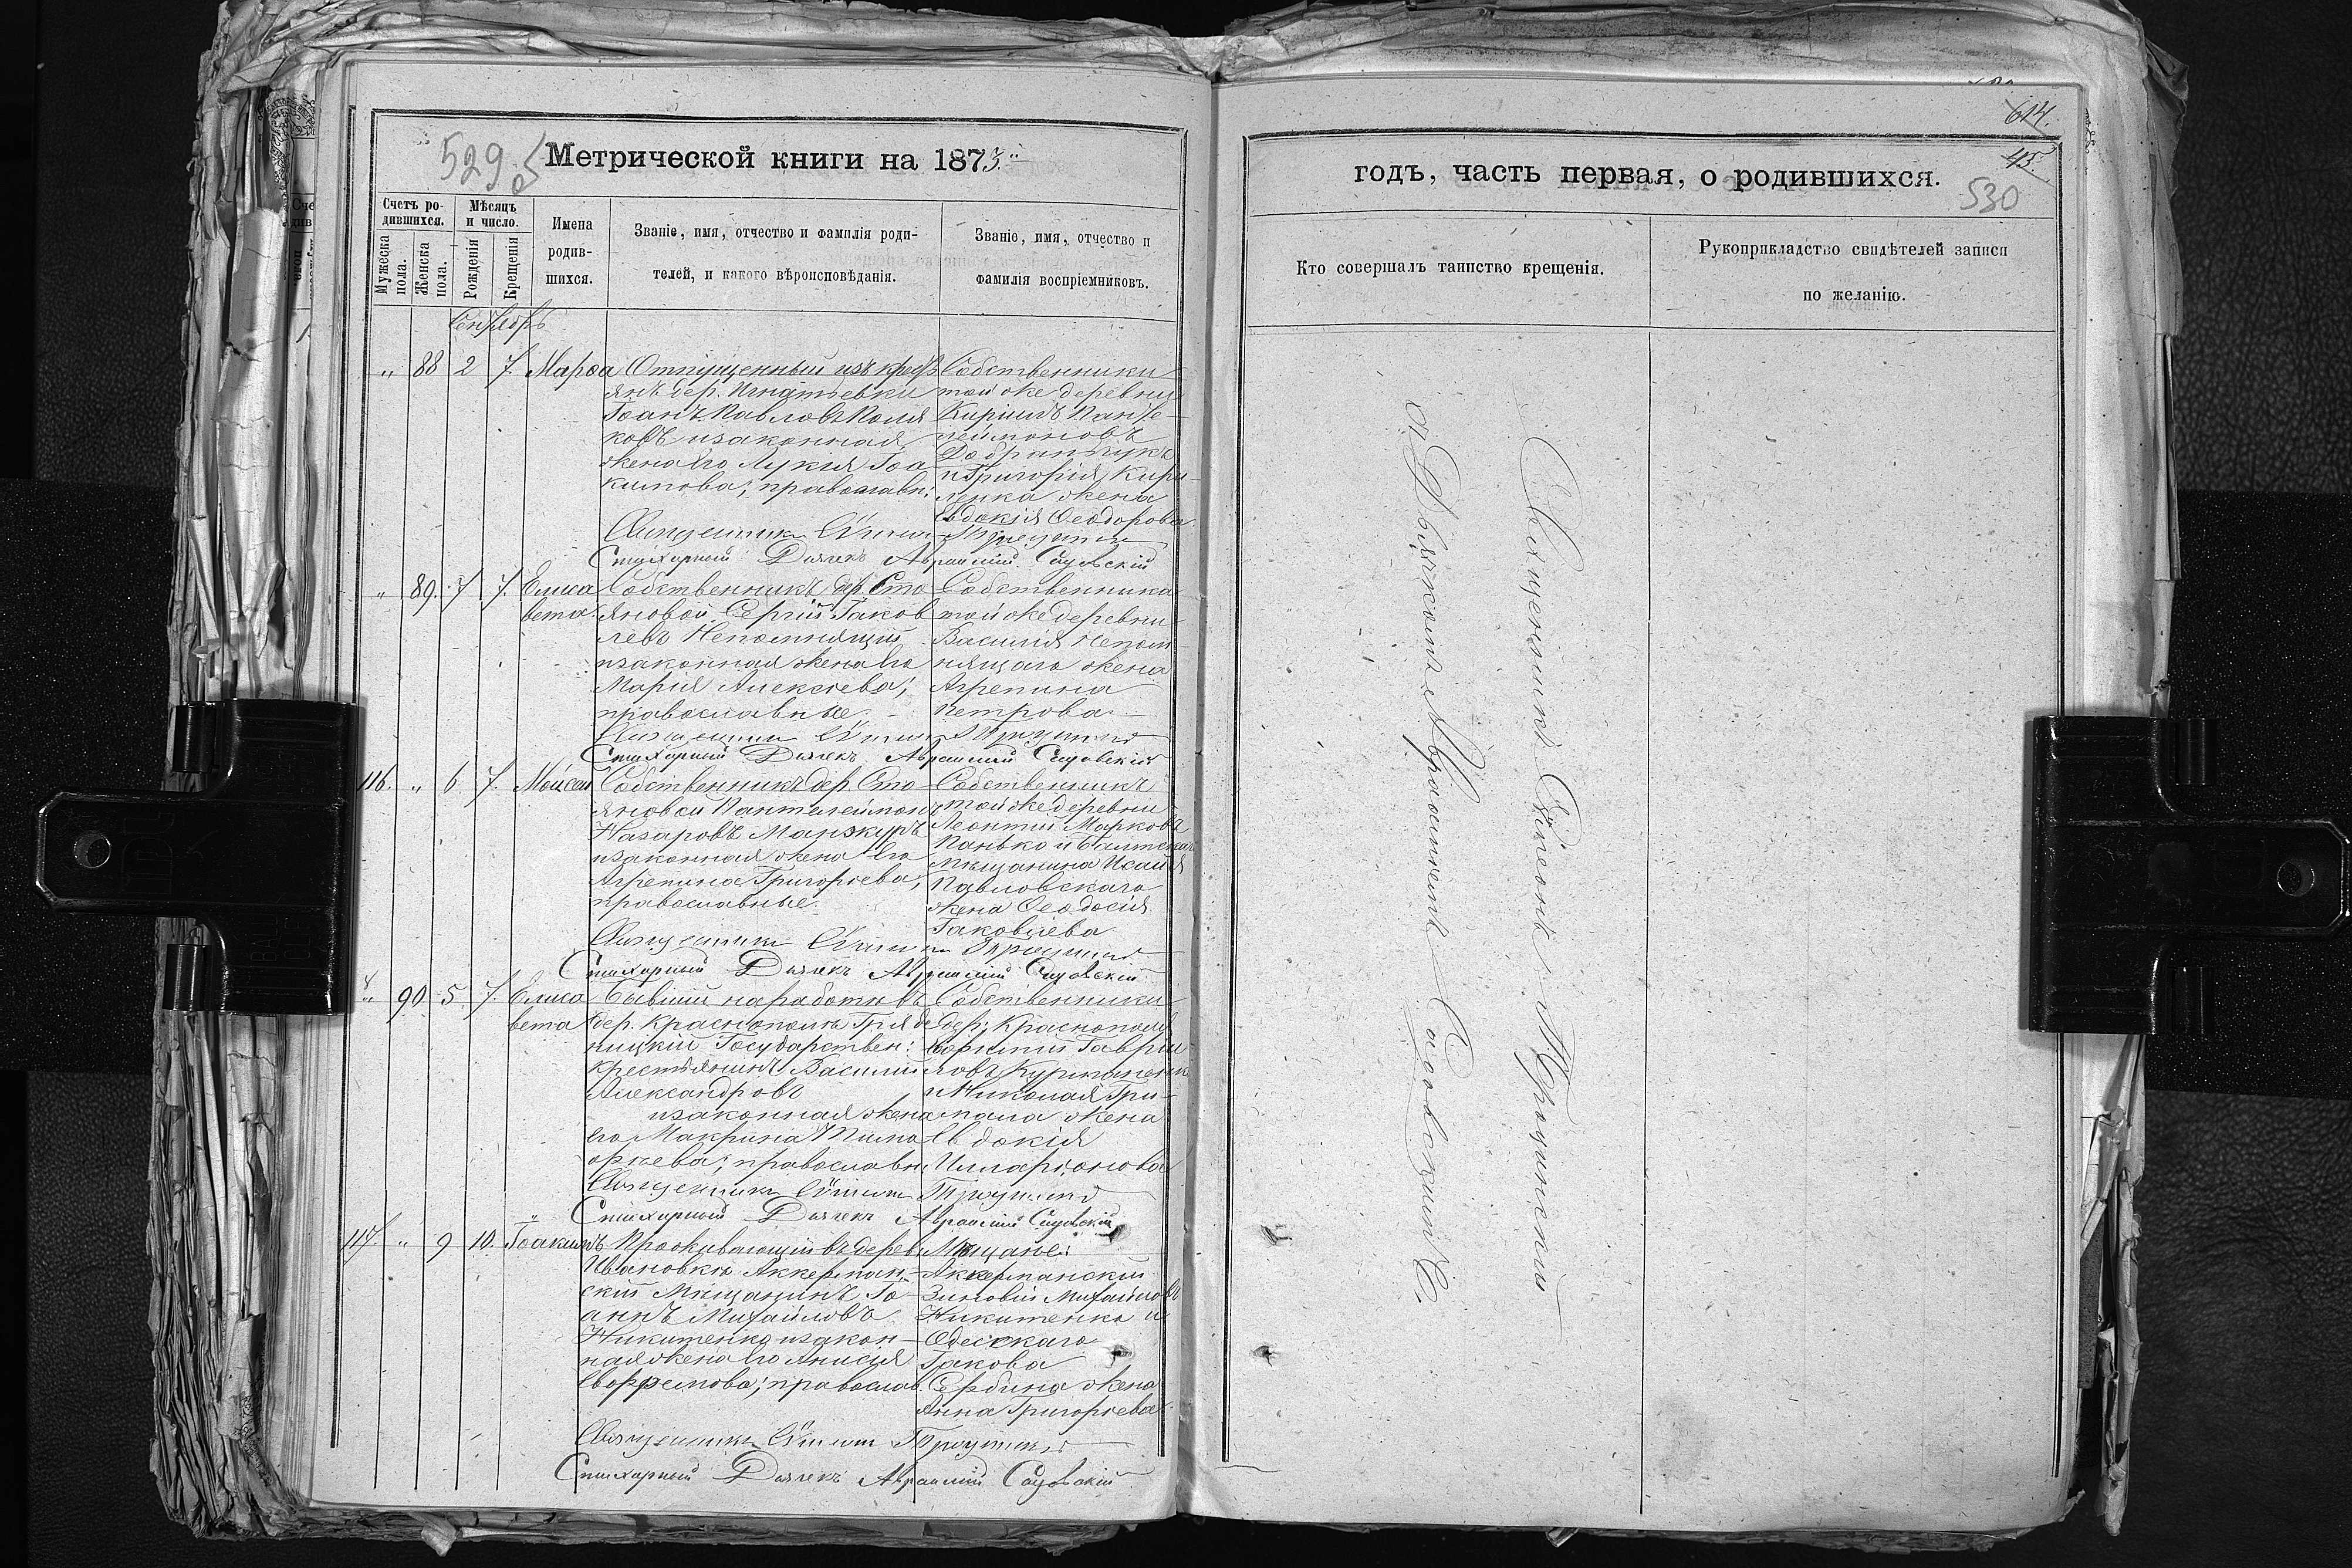 529 об
Метрической книги на 1873.
Счетъ родившихся.
Мужеска пола.
Женска пола.
Мѣсяцъ и число.
Рожденія
Крещенія
Имена родив-
шихся.
Званіе, имя, отчество и фамилія роди-
телей, и какого вѣроисповѣданія.
Званіе, имя, отчество и
фамилія воспріемниковъ.
Сентябрь
" 88 2 7. Марѳа
Отпущенный изъ крест
янъ дер. Игнатьевки
Іоаннъ Павловъ Поля
ковъ и законная
жена его Лукія Іоа
кимова; православн:
Собственники
той же деревни
Кирилъ Панте-
леймоновъ
и Григорія Кири-
ленка жена
Евдокія Ѳеодорова
Священникъ Симеонъ
Стихарный Дьячекъ Авраамій Садовскій
" 89. 7 7. Елиса
вета
Собственникъ дер. Сто
яновой Сергій Іаков
левъ Непомнящій
и законная жена его
Марія Алексѣева;
православные. -
Собственника
той же деревни
Василія Непом-
нящаго жена
Агрепина
Петрова
Священникъ Симеонъ
Стихарный Дьячекъ Авраамій Садовскій
116. " 6 7. Мойсей
Собственникъ дер. Сто-
яновой Пантелеймонъ
Назаровъ Манжуръ
и законная жена его
Агрепина Григорьева;
православные.
Собственникъ
той же деревни
Леонтій Марковъ
Панько и
Мѣщанина Исаія
Павловскаго
жена Ѳеодосія
Іаковлева
Священникъ Симеонъ
Стихарный Дьячекъ Авраамій Садовскій
" 90 5 7. Елиса
вета
Бывшій на работѣ въ
дер. Краснополѣ
Государствен:
крестьянинъ Василій
Александровъ
и законная жена
его Макрина Тимо
ѳѣева; православн.
Собственники
дер. Краснополя
Гаврии-
ловъ
и Николая Гри-
жена
Евдокія
Илларіонова
Священникъ Симеонъ
Стихарный Дьячекъ Авраамій Садовскій
117. " 9 10. Іоакимъ
Проживающій въ дерев.
Ивановкѣ Аккерман-
скій Мѣщанинъ Іо-
аннъ Михайловъ
Никитенко и закон-
ная жена его Анисія
православ.
Мѣщане:
Аккерманскій
Зиновій Михайловъ
Никитенко и
Одесскаго
Іакова
Сербина жена
Анна Григорьева
Священникъ Симеонъ
Стихарный Дьячекъ Авраамій Садовскій
614.
45.
530
годъ, часть первая, о родившихся.
Кто совершалъ таинство крещенія.
Рукоприкладство свидѣтелей записи
по желанію.
Священникъ Симеонъ
съ Дьячкомъ Авраамiемъ Садовскимъ.